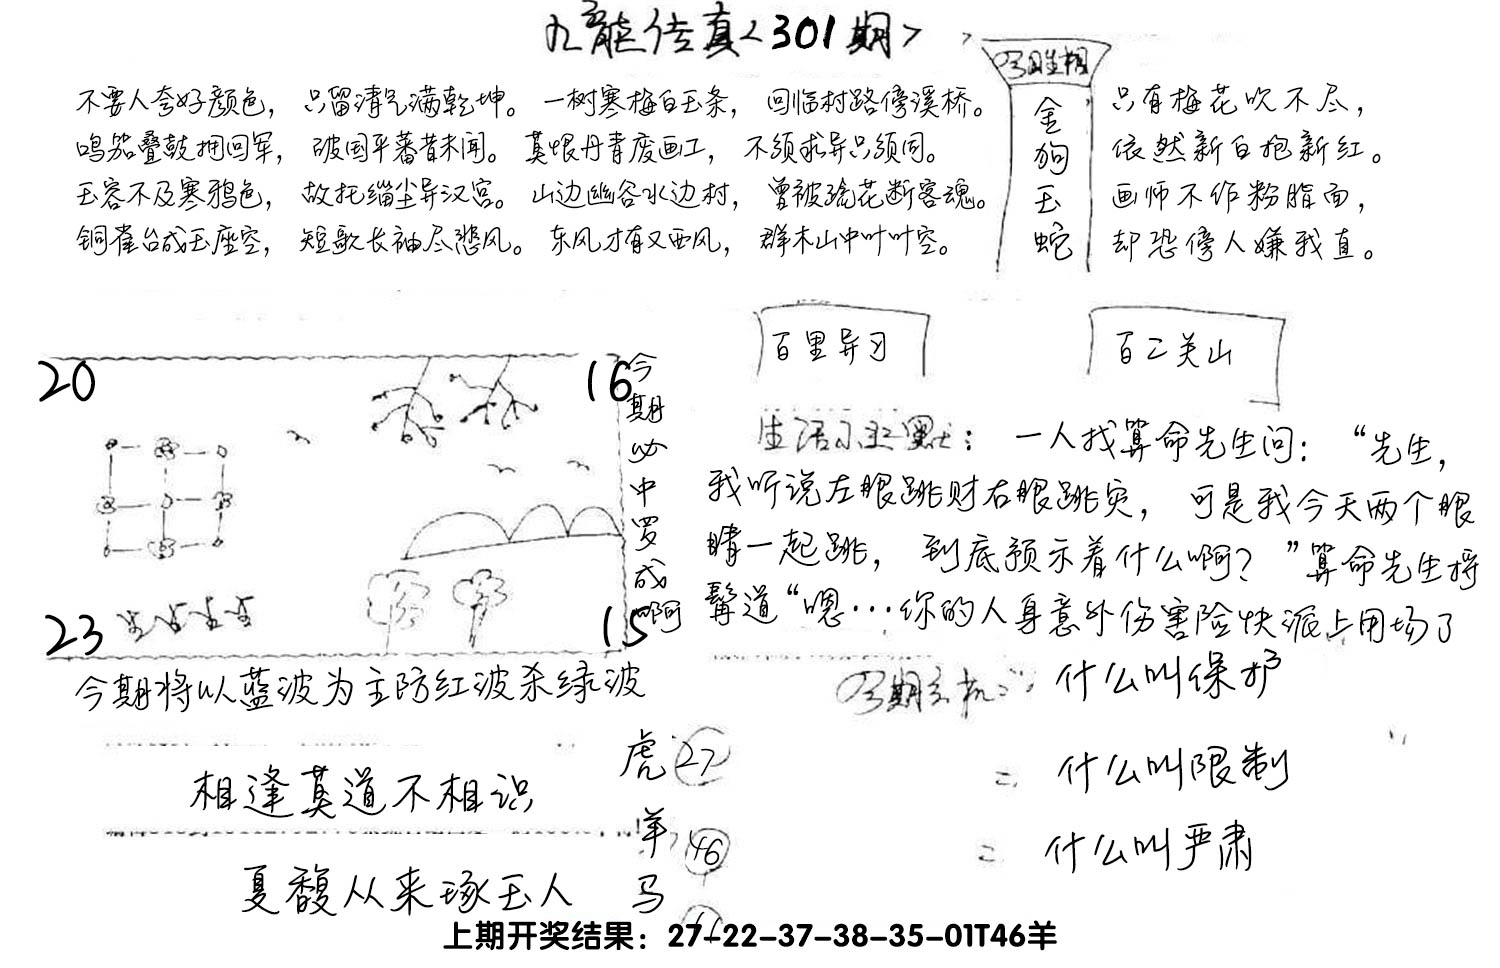 九龙传真<301期>
不要人夸好颜色，只留清气满乾坤。一树寒梅白玉条，回临村路傍溪桥。
鸣笳叠鼓拥回军，破国平蕃昔未闻。莫恨丹青废画工，不须求异只须同。
玉容不及寒鸦色，故托缁尘异汉宫。山边幽谷水边村，曾被疏花断客魂。
铜雀台成玉座空，短歌长袖尽悲风。东风才有又西风，群木山中叶叶空。
今日生相
金狗玉蛇
只有梅花吹不尽，
依然新白抱新红。
画师不作粉脂面，
却恐傍人嫌我直。
百里异习
百二关山
20
16
23
15
今期必中罗成啊
生活小幽默：一人找算命先生问：“先生，
我听说左眼跳财右眼跳灾，可是我今天两个眼
睛一起跳，到底预示着什么啊？”算命先生捋
髯道“嗯…你的人身意外伤害险快派上用场了
今期将以蓝波为主防红波杀绿波
今期玄机：什么叫保护
什么叫限制
什么叫严肃
相逢莫道不相识
夏馥从来琢玉人
虎 27
羊 46
马
上期开奖结果：27-22-37-38-35-01T46羊